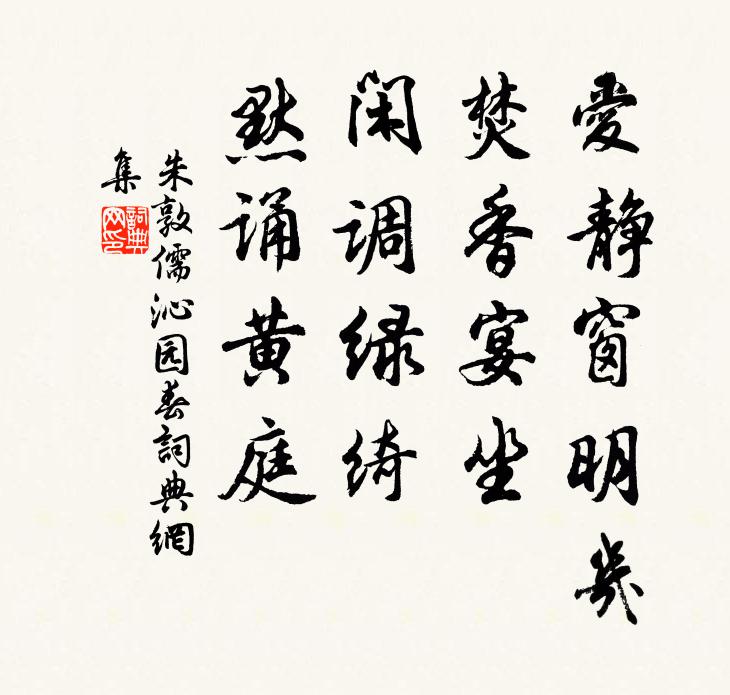 愛静窗明幾
焚香宴坐
闲调绿绮
默诵黄庭
朱敦儒沁园春詞典網
集
詞典网印